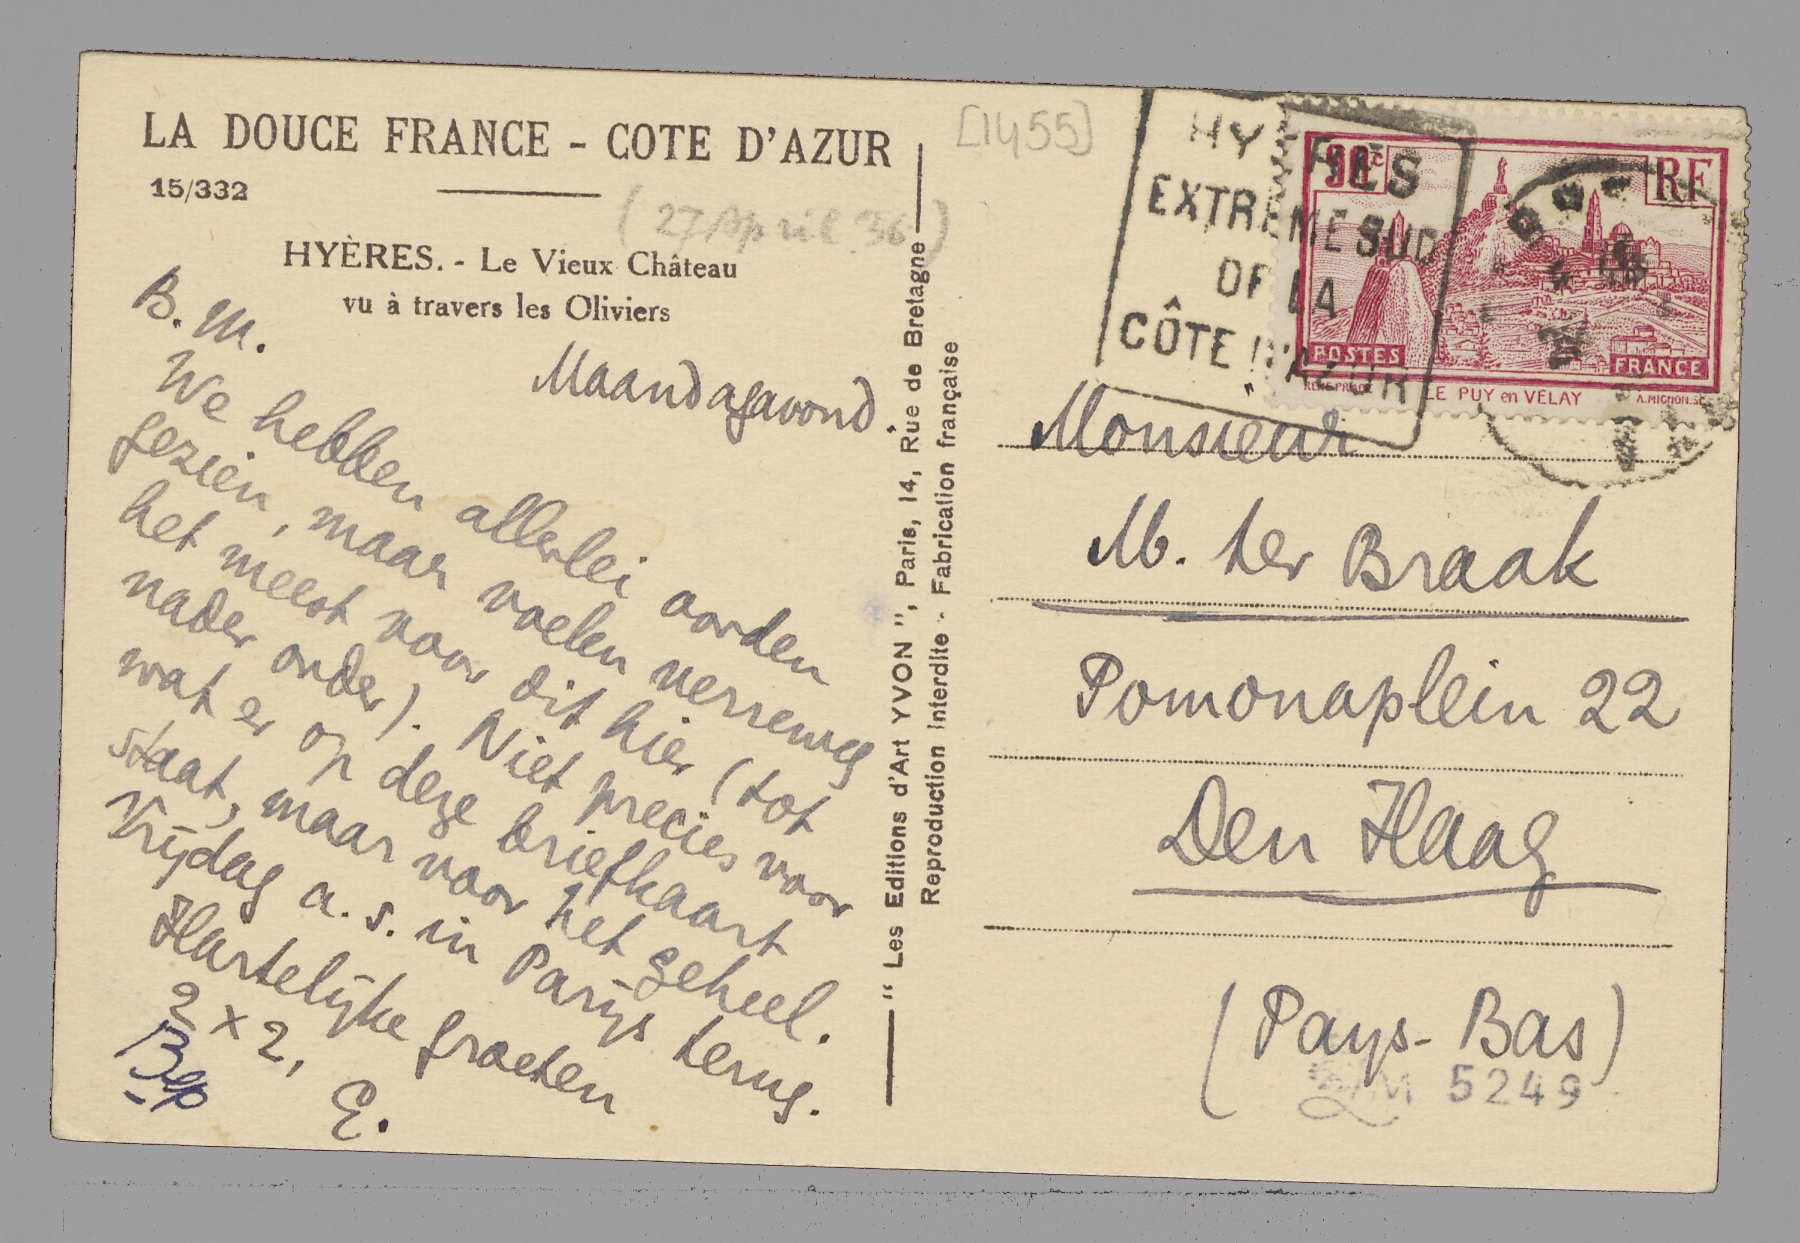 LA DOUCE FRANCE - COTE D'AZUR
15/332
(27 April 36)
HYÈRES. - Le Vieux Château
vu à travers les Oliviers
B. M.
Maandagavond.
We hebben allerlei oorden
gezien, maar voelen verreweg
het meest voor dit hier (tot
nader order). Niet precies voor
wat er op deze briefkaart
staat, maar voor het geheel.
Vrijdag a.s. in Parijs terug.
Hartelijke groeten
2 x 2,
E.
Bep
"Les Editions d'Art YVON", Paris, 14, Rue de Bretagne
Reproduction interdite - Fabrication française
[1455]
HYÈRES
EXTREME SUD
DE LA
CÔTE D'AZUR
90c
RF
POSTES
FRANCE
LE PUY en VELAY
A. MIGNON. SC
Monsieur
M. ter Braak
Pomonaplein 22
Den Haag
(Pays-Bas)
5249